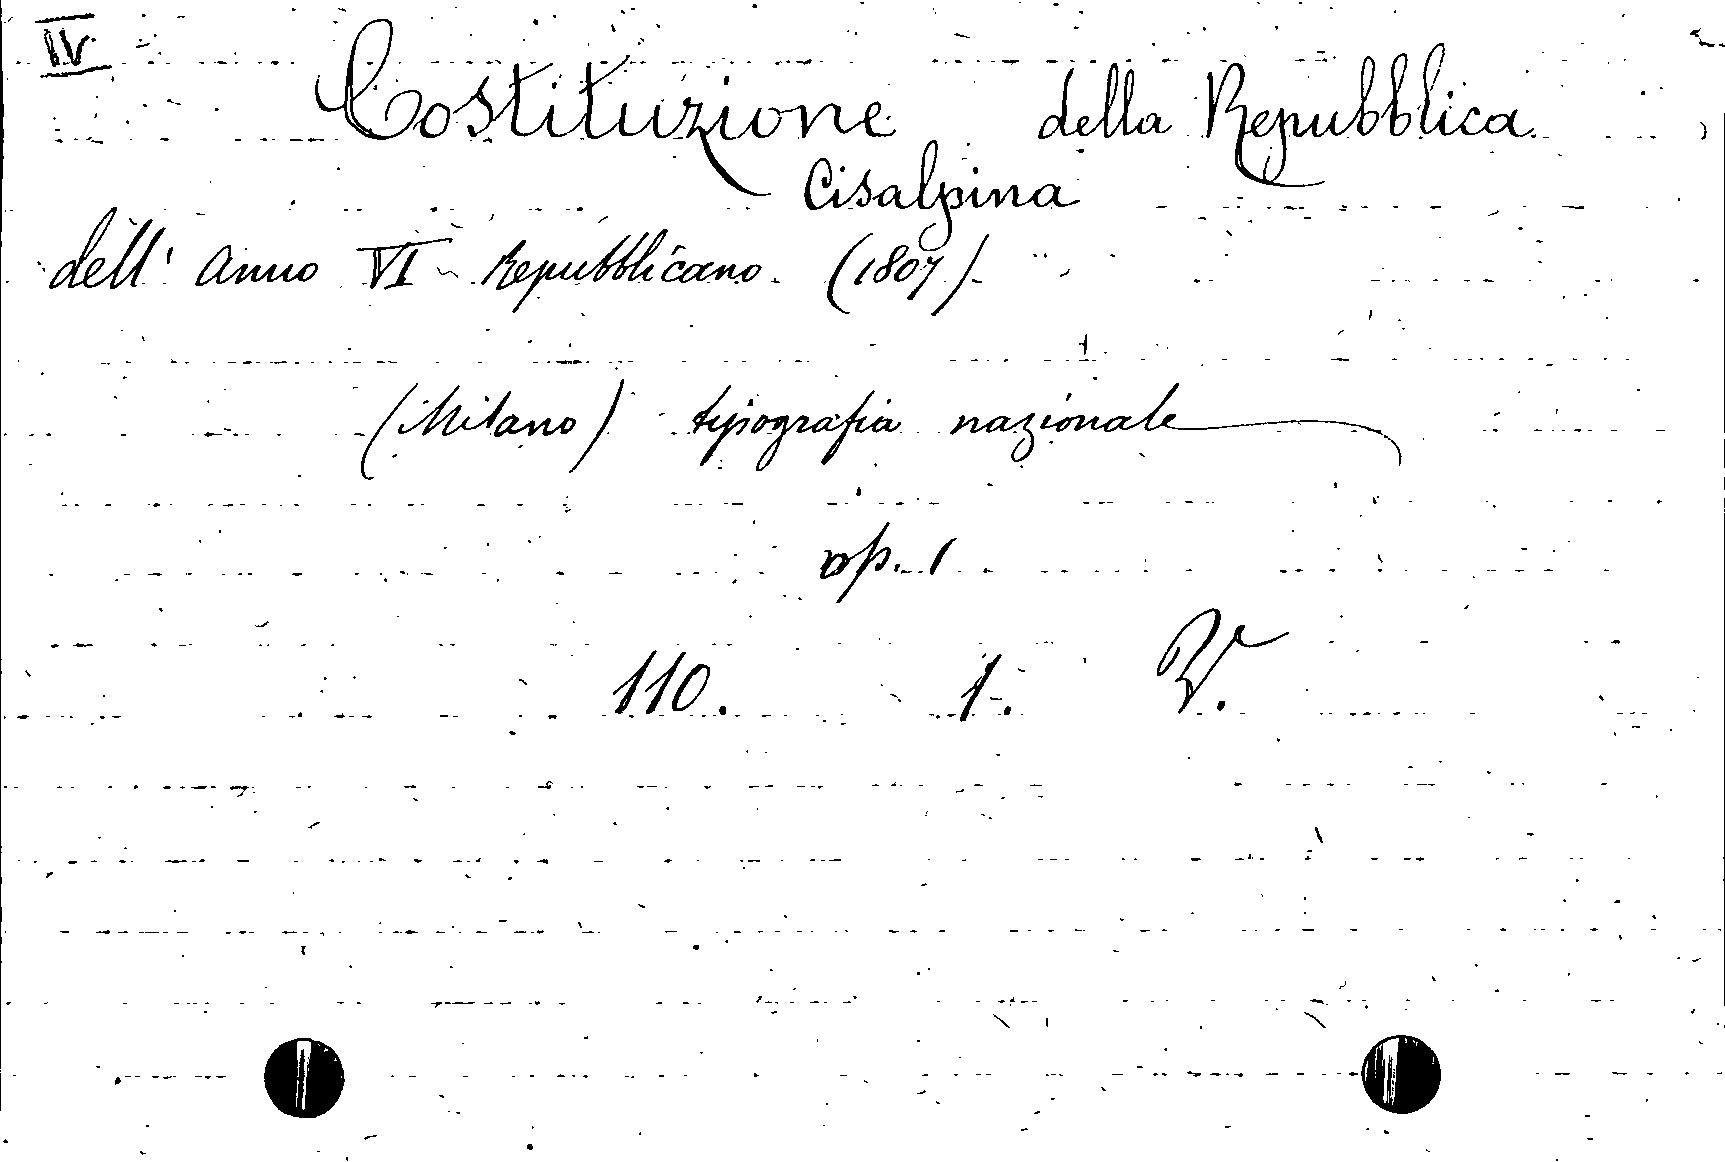 IV
Costituzione della Repubblica
Cisalpina
dell' Anno VI Repubblicano. (1807)
(Milano) tipografia nazionale
op. 1
110. 1.